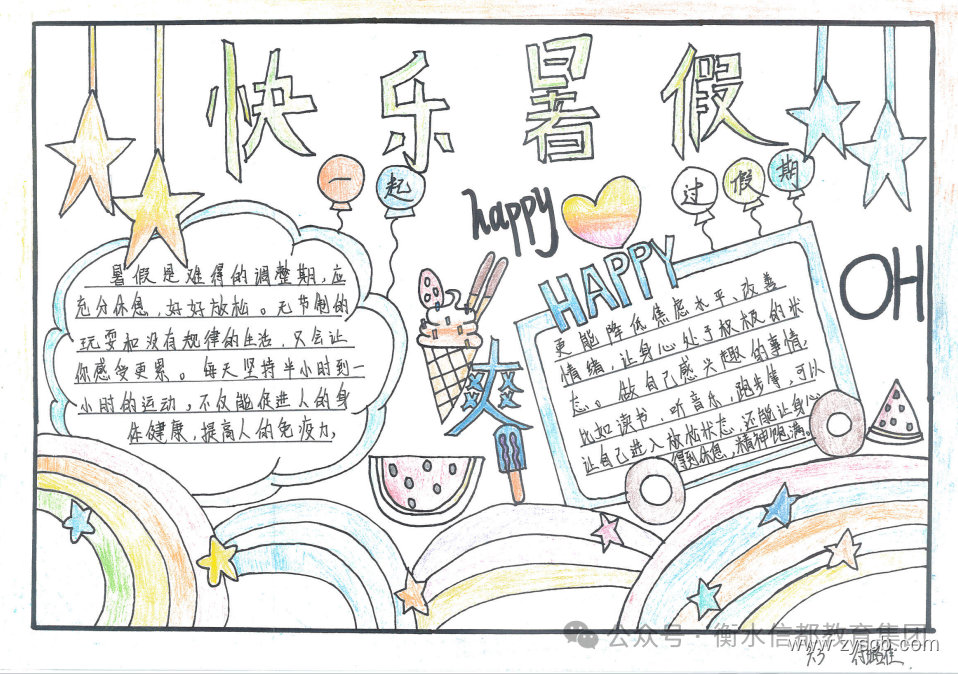 快乐暑假
一起
过假期
happy
HAPPY
OH
暑假是难得的调整期,应
充分休息,好好放松。无节制的
玩耍和没有规律的生活,只会让
你感受更累。每天坚持半小时到一
小时的运动,不仅能促进人的身
体健康,提高人的免疫力,
爽
更能降低焦虑水平、改善
情绪,让身心处于积极的状
态。做自己感兴趣的事情,
比如读书,听音乐,跑步等,可以
让自己进入放松状态,还能让身心
得到休息,精神饱满。
公众号·衡水信都教育集团
www.zysgb.com